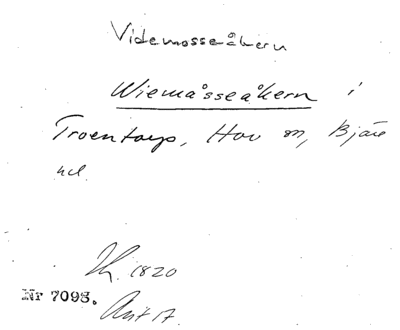 Videmosseåkern
Wiemåsseåkern i
Troentorp, Hov sn, Bjäre
hd.
1820
Nr 7093.
Akt 17